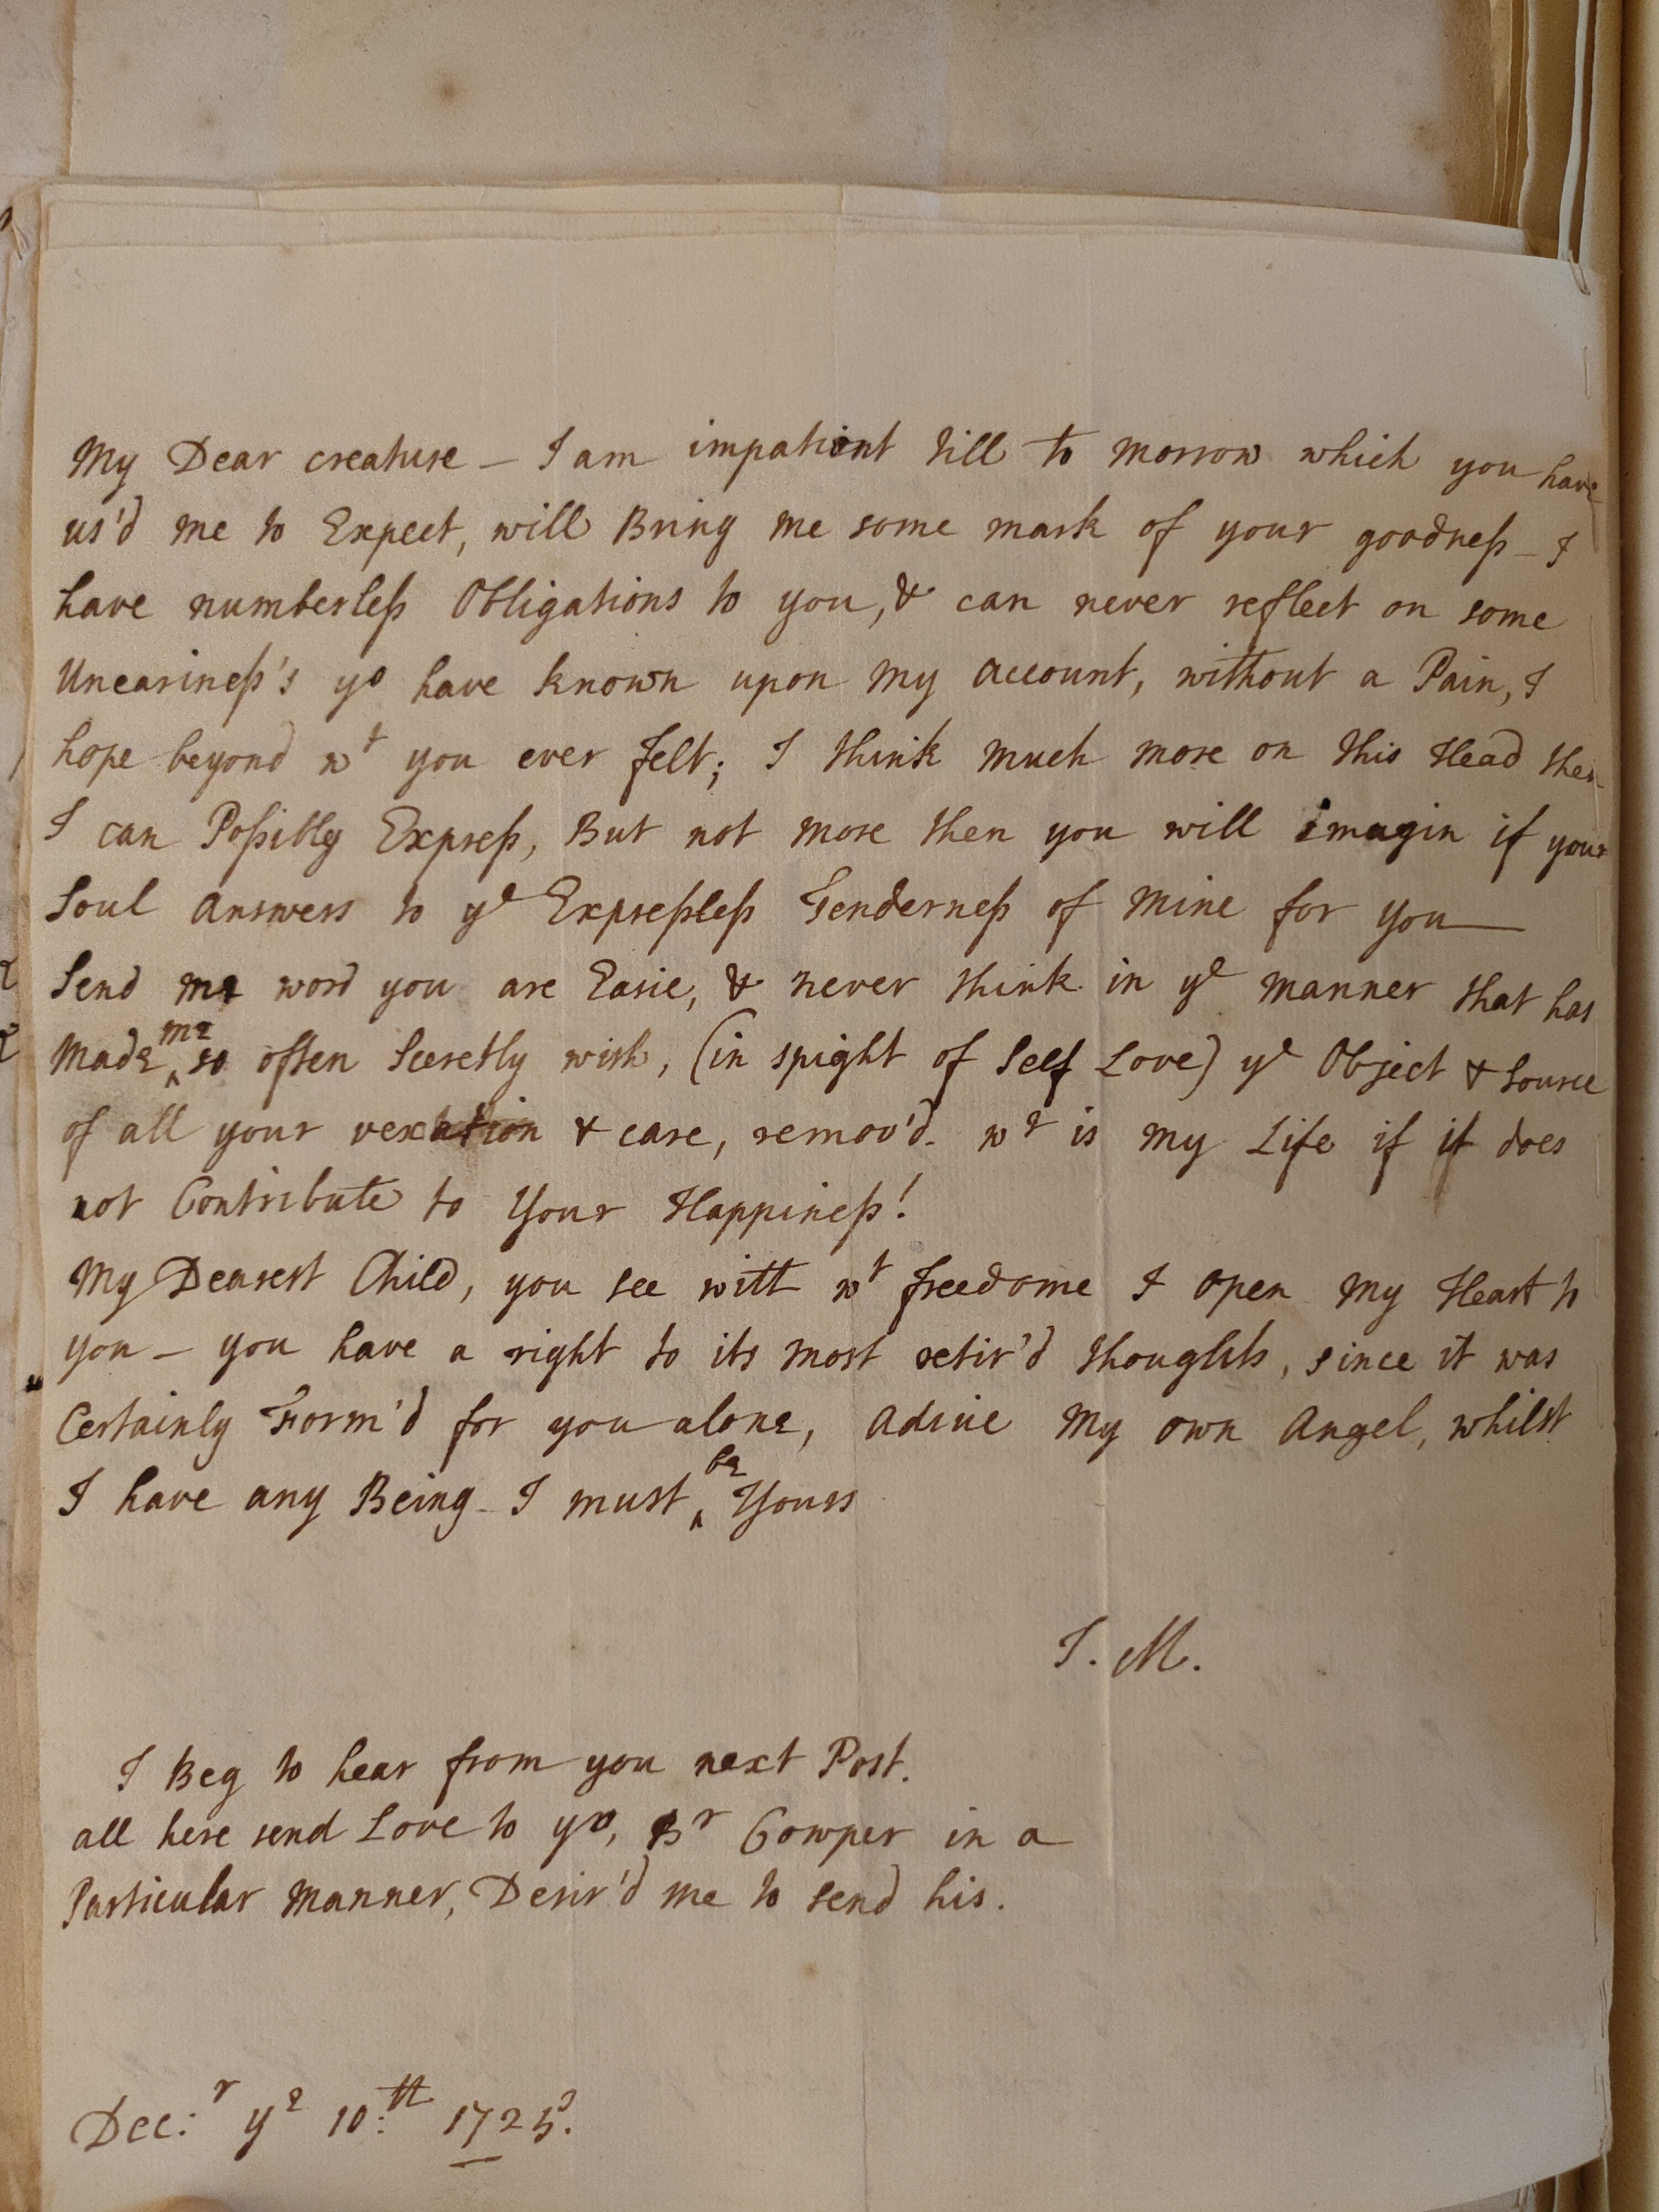 My Dear creature – I am impatient till to morrow which you have
us'd me to Expect, will Bring me some mark of your goodneſs – I
have numberleſs Obligations to you, & can never reflect on some
Uneasineſs's yo have known upon my account, without a Pain, I
hope beyond wt you ever felt; I think much more on this Head then
I can Poſsibly Expreſs, But not more then you will imagin if your
Soul answers to ye Expreſsleſs Tenderneſs of mine for you —
Send me word you are Easie, & never think in ye manner that has
made ^me so often Secretly wish, (in spight of Self Love) ye Object & Source
of all your vexation & care, remov'd. wt is my Life if it does
not Contribute to Your Happineſs!
My Dearest Child, you see with wt freedome I open my Heart to
you – you have a right to its most retir'd thoughts, since it was
Certainly Form'd for you alone, adiue my own Angel, whilst
I have any Being – I must ^be Yours
J. M.
I Beg to hear from you next Post.
all here send Love to yo, Br Cowper in a
Particular manner, Desir'd me to send his.
Decr: ye 10:th 1725.